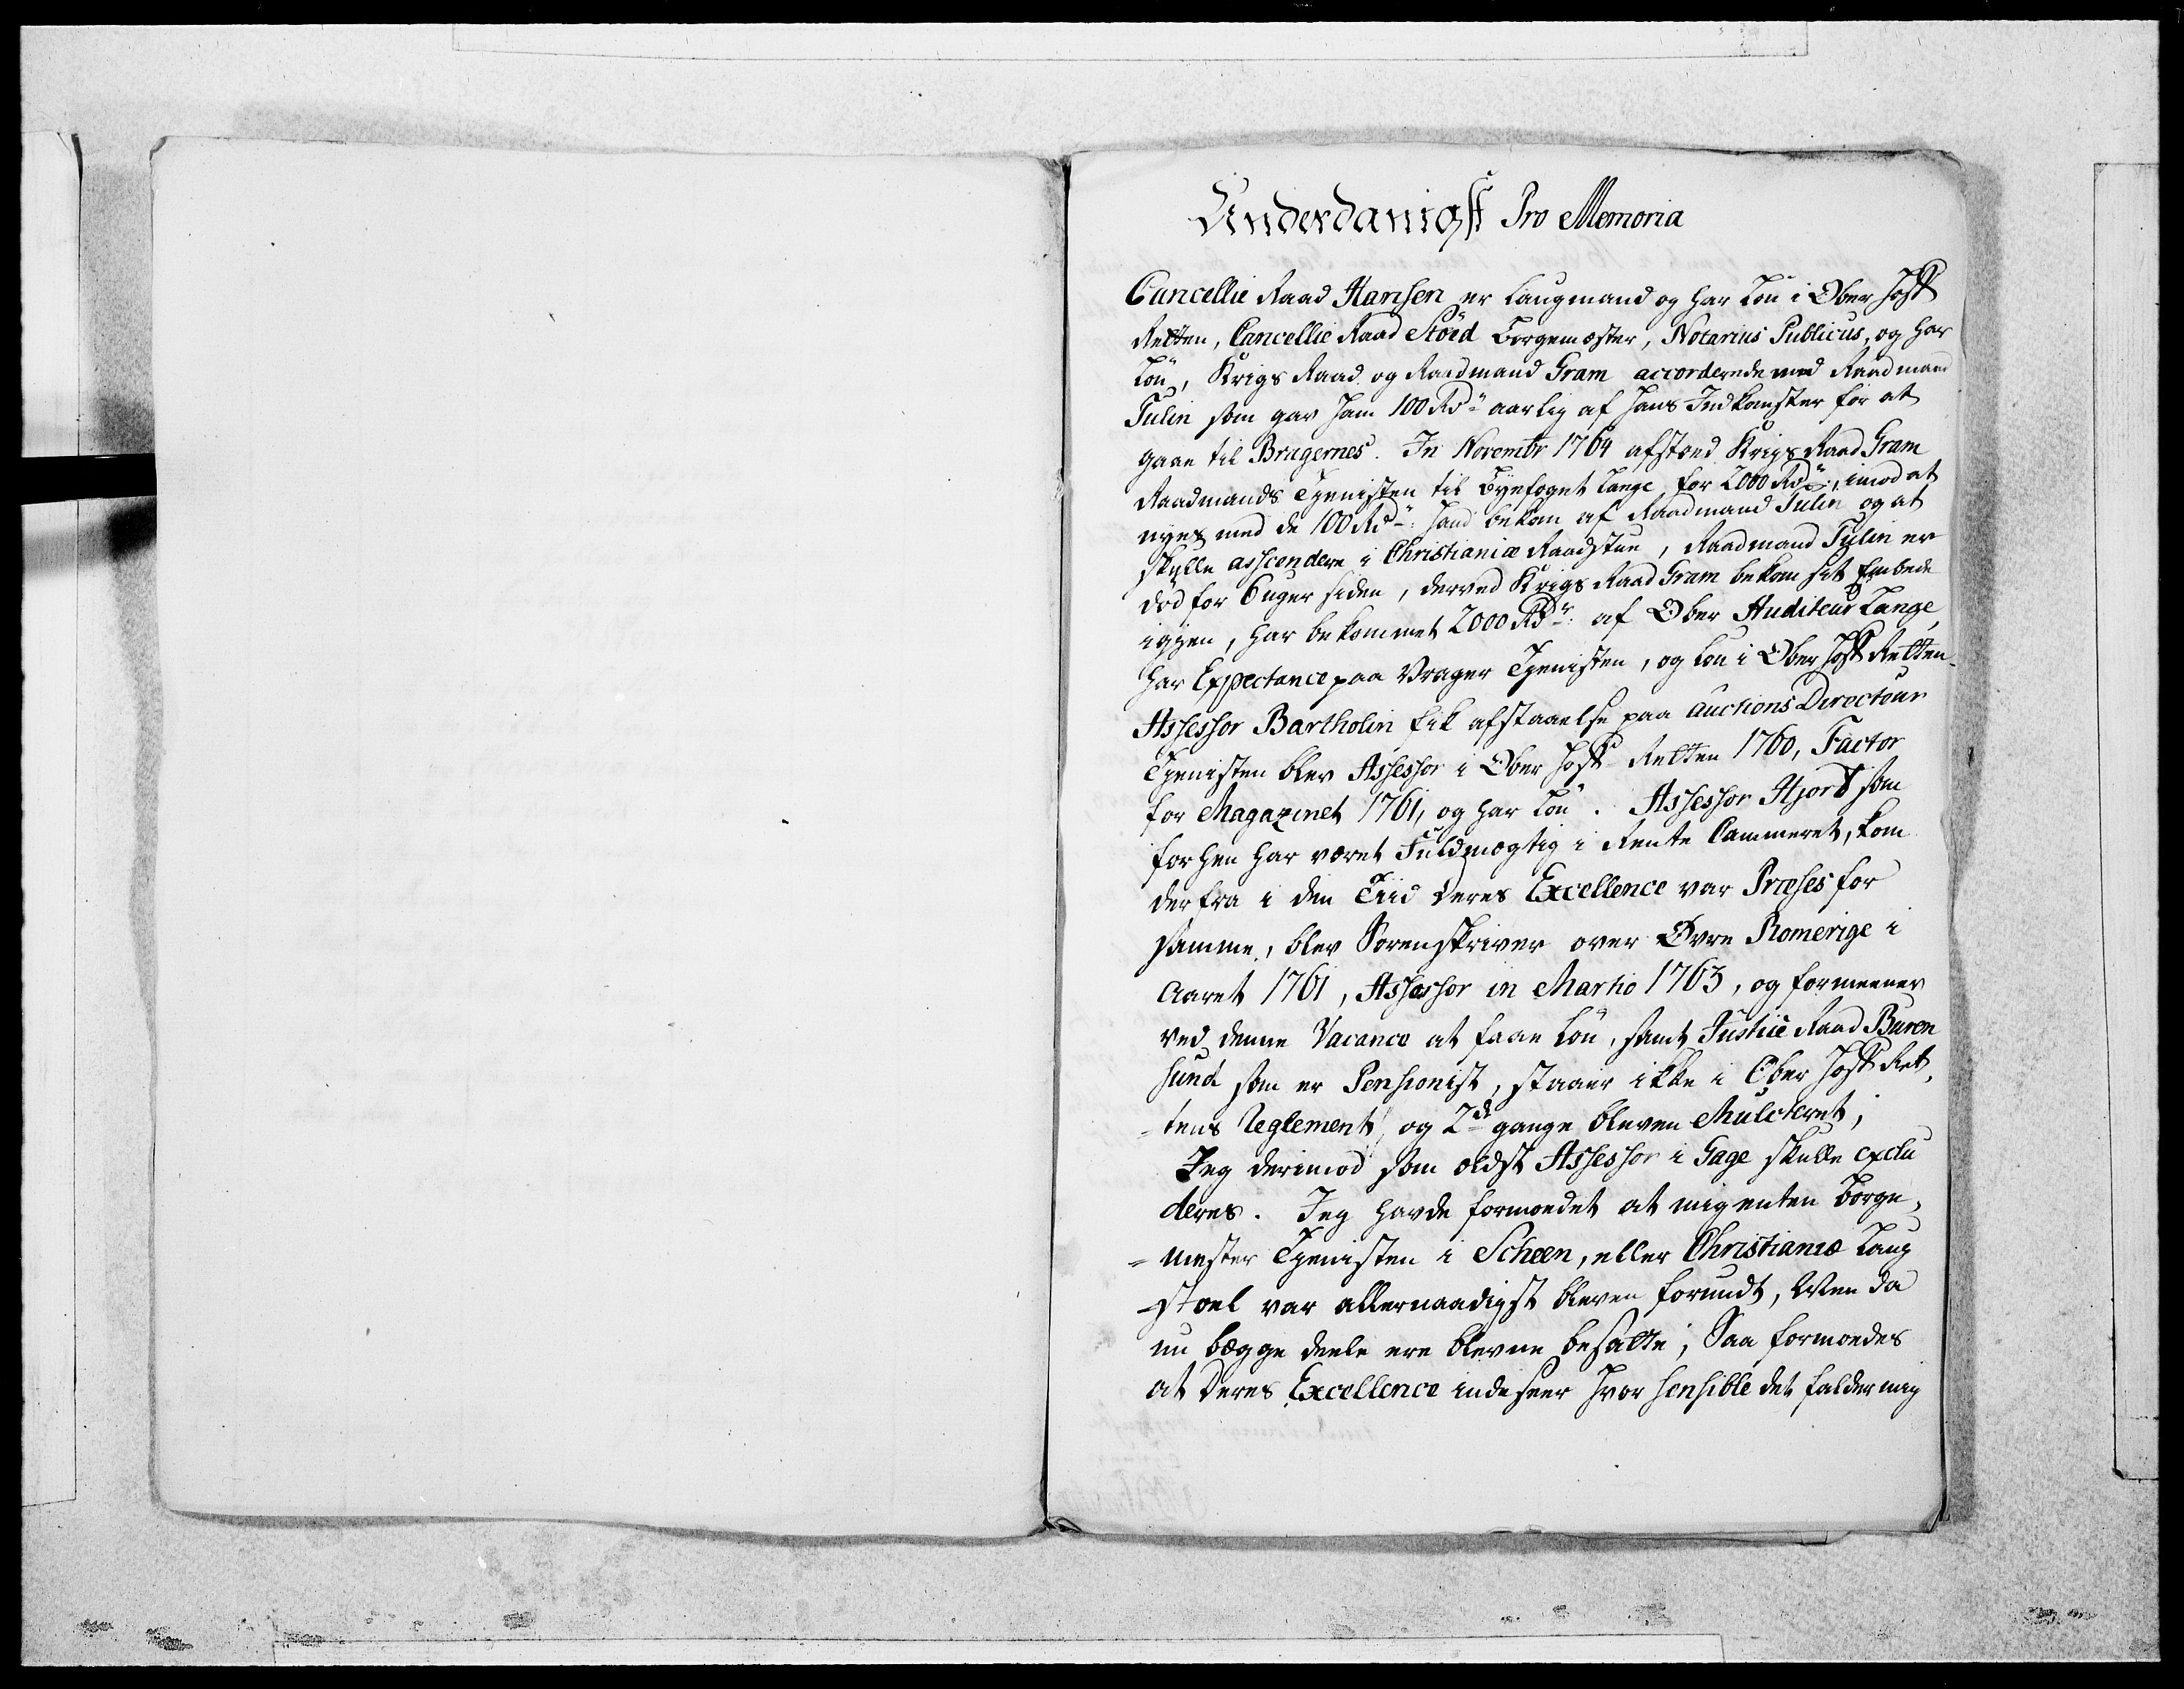 Underdanigst Pro Memoria
Cancellie Raad Hansen er Laugmand og har Løn i Ober Hoff
Retten, Cancellie Raad Stöed Borgemester, Notarius Publicus, og har
Løn, Krigs Raad og Raadmand Gram accorderede med Raadmand
Tulin som gav ham 100 Rdr aarlig af hans Indkomster for at
gaae til Bragernes. In Novembr 1764 afstoed Krigs Raad Gram
Raadmands Tienisten til Byefoget Lange for 2000 Rdr, imod at
nyes med de 100 Rdr: hand bekom af Raadmand Tulin og at
skulle asscendere i Christianiæ Raadstue, Raadmand Tulin er
død for 6 uger siden, derved Krigs Raad Gram bekom sit Embede
igien, har bekommet 2000 Rdr: af Ober Auditeur Lange,
har Expectance paa Vrager Tienisten, og Løn i Ober Hoff Retten.
Assessor Bartholin fik afstaaelse paa Auctions Directeur
Tienisten blev Assessor i Ober Hoff Retten 1760, Factor
for Magazinet 1761, og har Løn. Assessor Hjort som
forhen har været Fuldmægtig i Rente Cammeret, kom
derfra i den Tiid Deres Excellence var Præses for
samme, blev Sorenskriver over Øvre Romerige i
Aaret 1761, Assessor in Martio 1763, og formeener
ved denne Vacance at faae Løn, samt Justice Raad Baren
sund som er Pensionist, staaer ikke i Ober Hoff Ret,
-tens Reglement, og 2de gange bleven Mulcteret,
Jeg derimod som ældst Assessor i Gage skulle exclu
deres. Jeg havde formoedet at mig enten Borge,
-mester Tienisten i Scheen, eller Christianiæ Laug
-stoel var allernaadigst bleven forundt, Men da
nu begge deele ere blevne besatte, Saa formoedes
at Deres Excellence indseer hvor sensible det falder mig